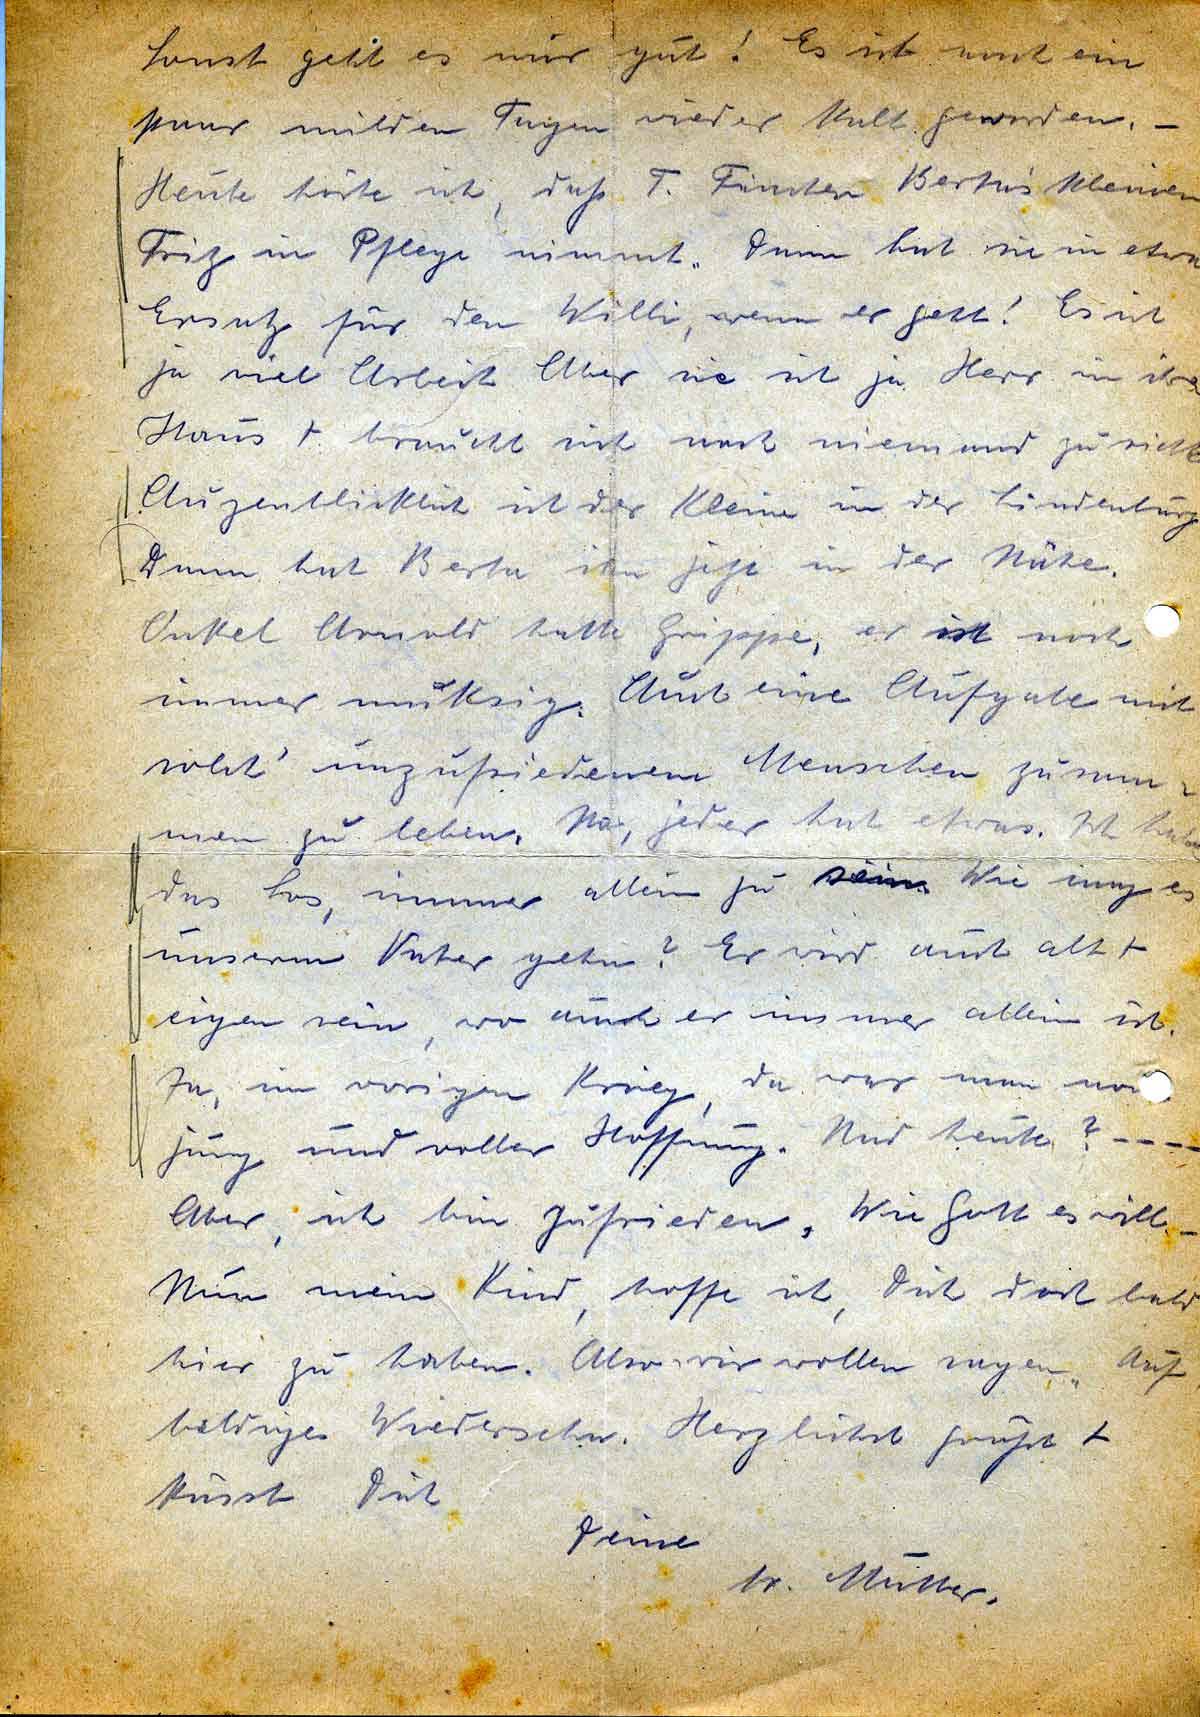 Sonst geht es mir gut! Es ist nach ein
paar milden Tagen wieder kalt geworden. –
Heute hörte ich, daß T. Finchen Berta's kleinen
Fritz in Pflege nimmt. Dann hat sie in etwa
Ersatz für den Willi, wenn er geht! Es ist
ja viel Arbeit. Aber sie ist ja Herr in ihrem
Haus + braucht sich nach niemand zu richten
Augenblicklich ist der Kleine in der Lindenburg
Dann hat Berta ihn jetzt in der Nähe.
Onkel Arnold hatte Grippe, er ist noch
immer muksig. Auch eine Aufgabe mit
solch' unzufriedenem Menschen zusam-
men zu leben. Na, jeder hat etwas. Ich habe
das Los, immer allein zu sein. Wie mag es
unserm Vater gehn? Er wird auch alt +
eigen sein, wo auch er immer allein ist.
Ja, im vorigen Krieg, da war man noch
jung und voller Hoffnung. Und heute? ----
Aber, ich bin zufrieden. Wie Gott es will. –
Nun mein Kind, hoffe ich, Dich doch bald
hier zu haben. Also wir wollen sagen „Auf
baldiges Wiedersehn. Herzlichst grüßt +
küsst Dich
Deine
tr. Mutter.